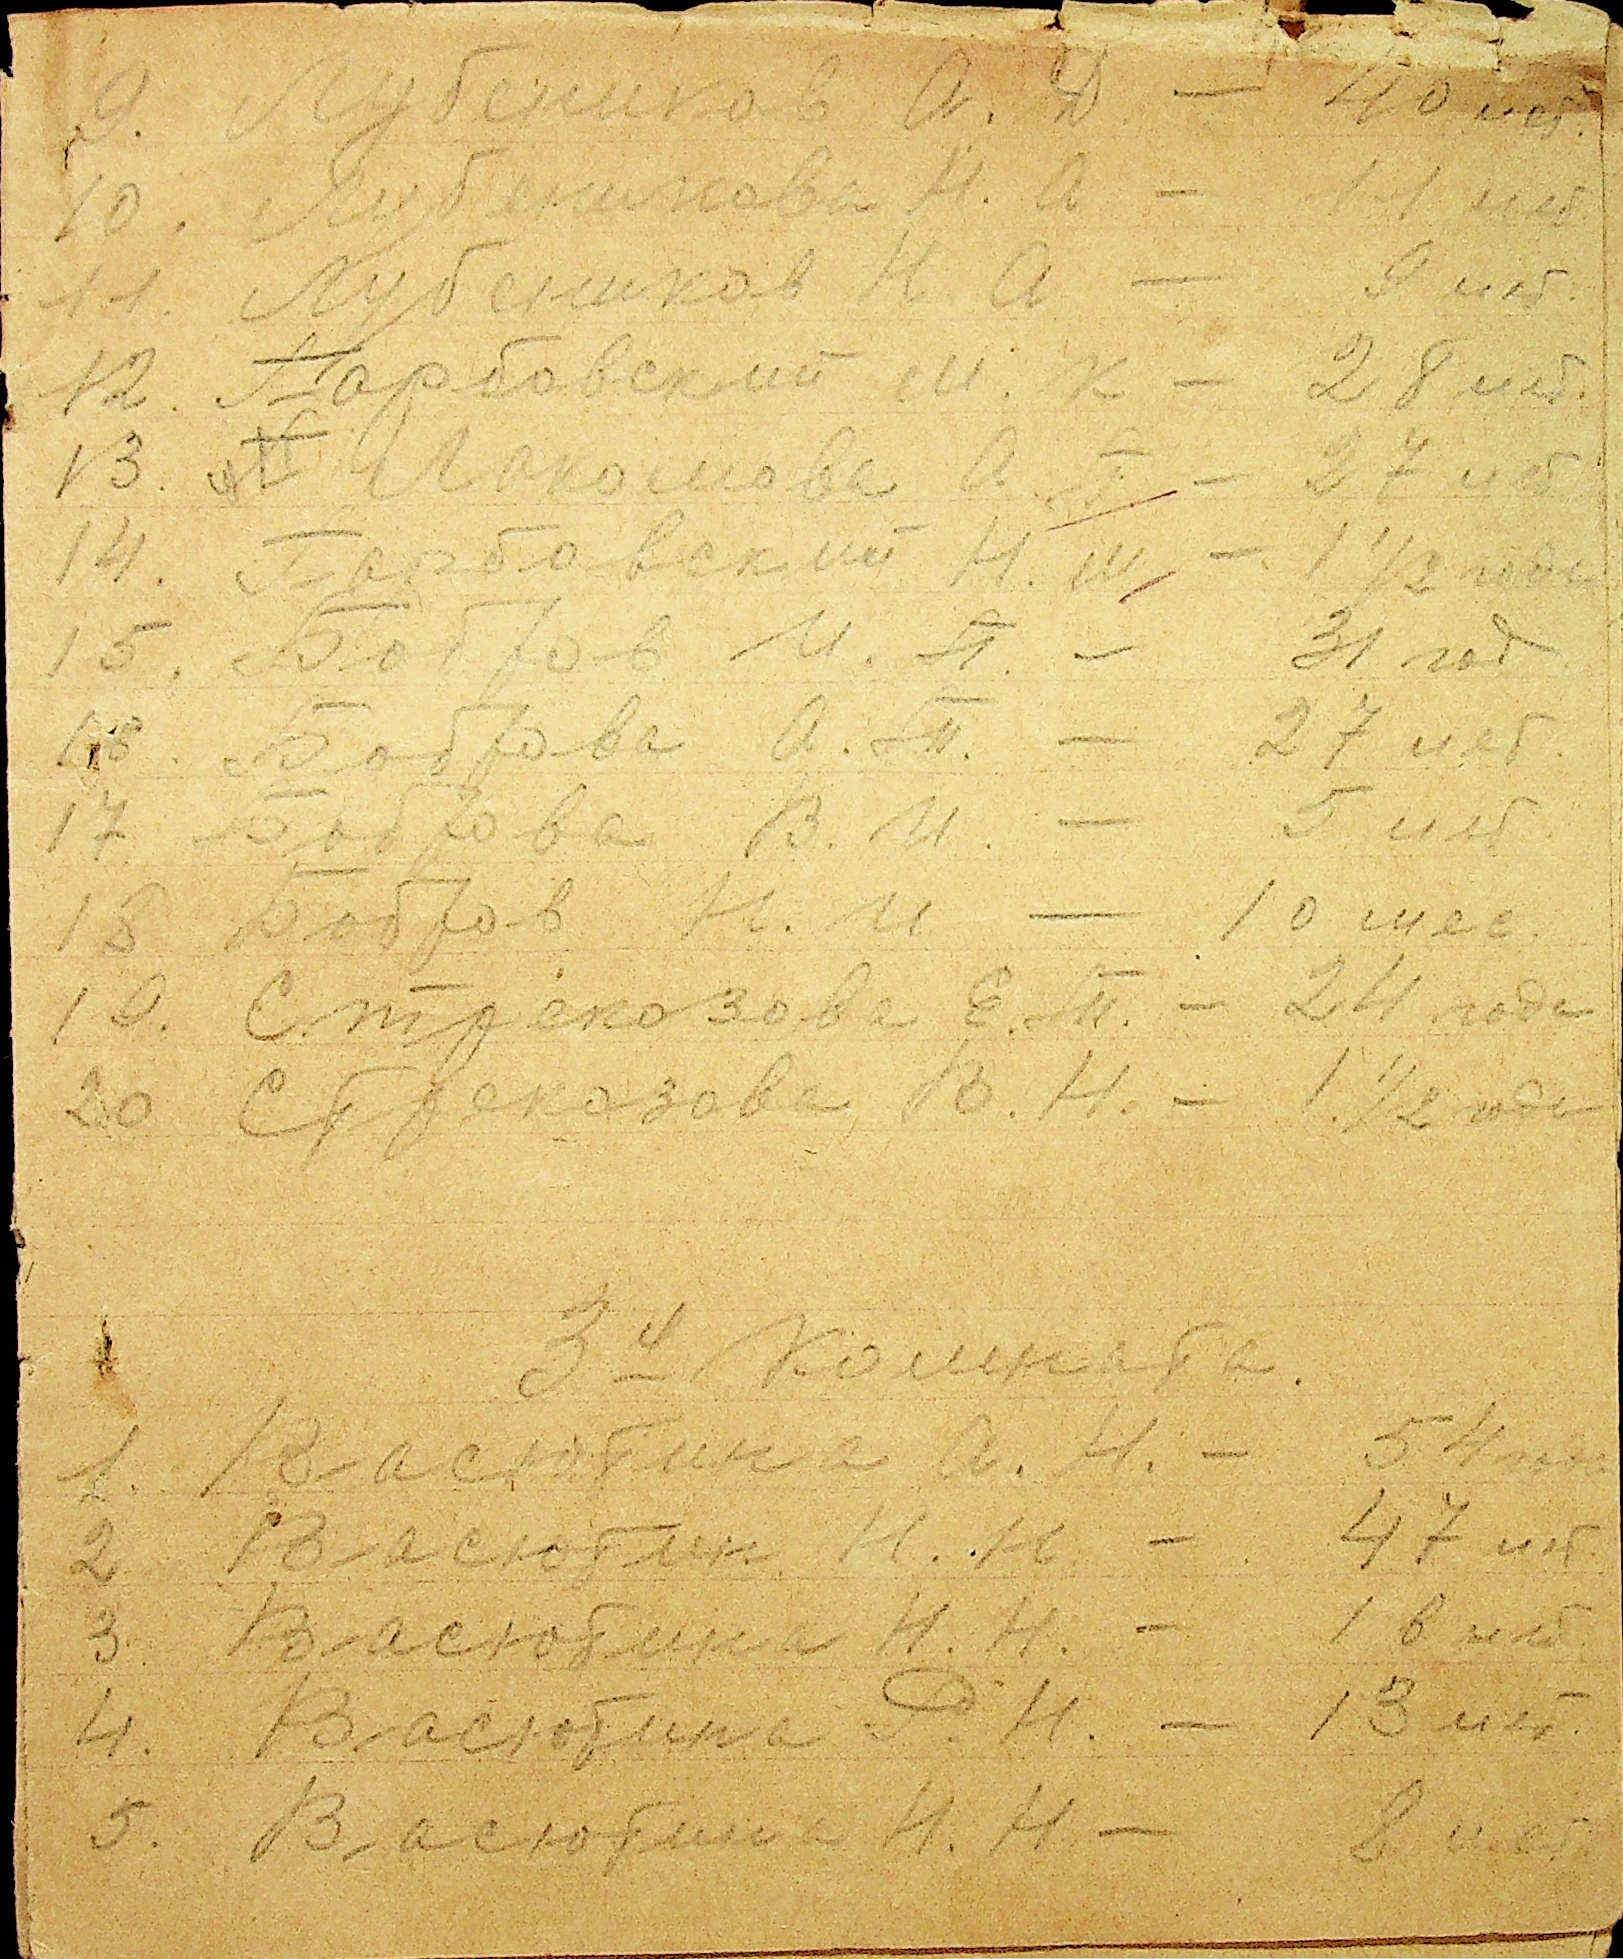 9. Лубеников А. Д. — 40 лет.
10. Лубеникова Н. А — 11 лет.
11. Лубеников Н. А — 9 лет.
12. Тарбовский М. К — 28 лет.
13. Лакомова А. — 27 лет
14. Тарбовский Н. М — 1 1/2 года
15. Бобров И. П. — 31 год
16. Боброва А. П. — 27 лет.
17 Боброва В. И. — 5 лет.
18 Бобров Н. И — 10 мес.
19. Стрекозова Е. П. — 24 года
20 Стрекозова В. Н. — 1 1/2 года
3я Комната.
1. Васютина А. Н. — 54 года
2 Васютин Н. Н. — 47 лет.
3. Васютина Н. Н. — 16 лет.
4. Васютина Р. Н. — 13 лет.
5. Васютина Н. Н — 8 лет.